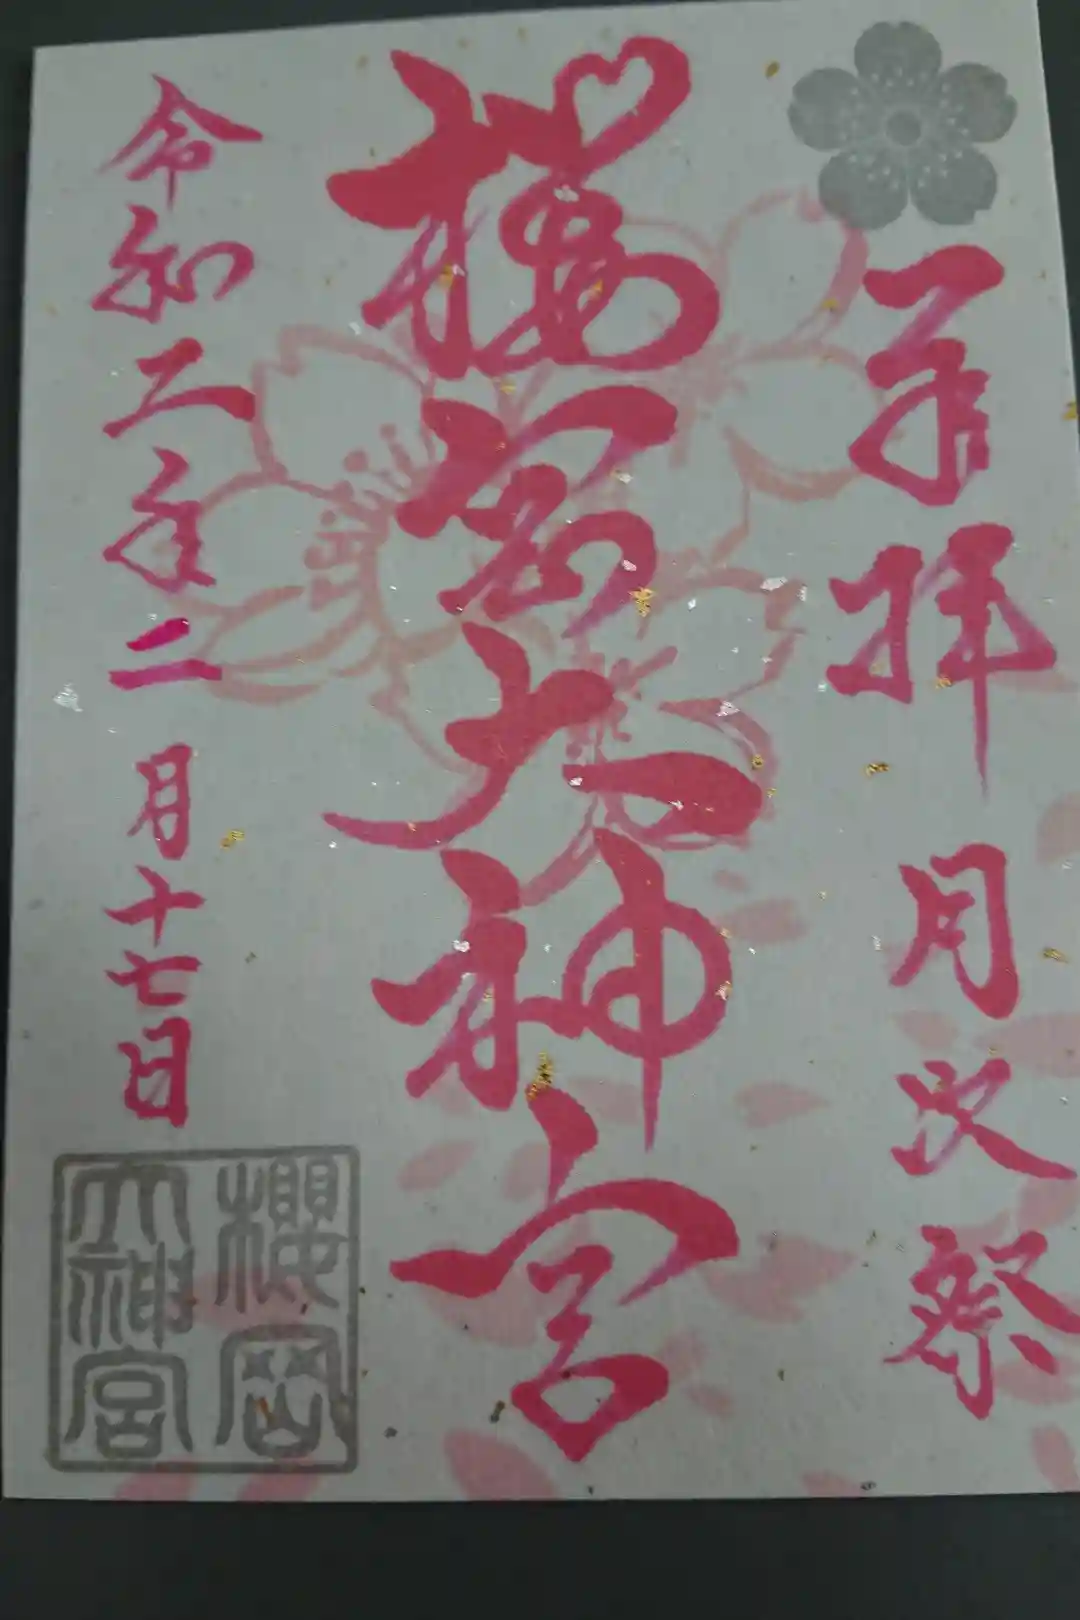 奉拝
月次祭
櫻岡大神宮
令和二年二月十七日
櫻岡
大神宮